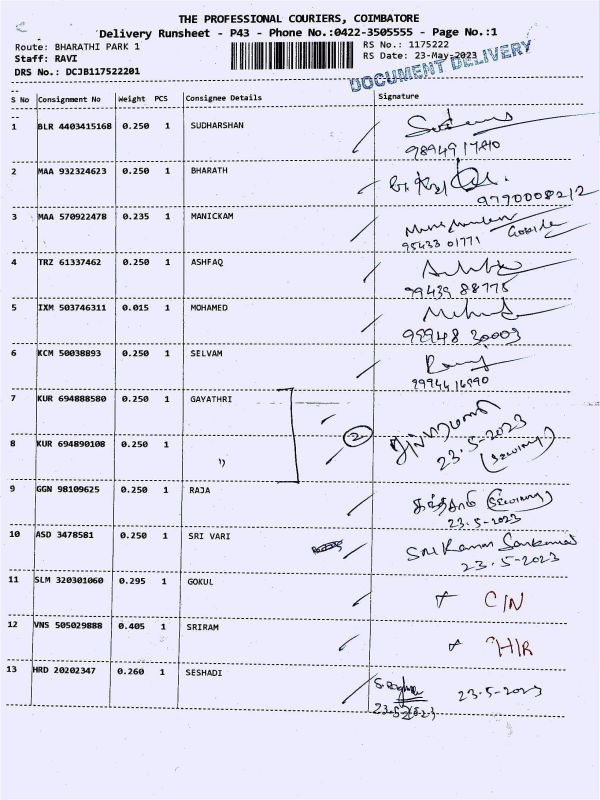 THE PROFESSIONAL COURIERS, COIMBATORE
Delivery Runsheet - P43 - Phone No.:0422-3505555 - Page No.:1
Route: BHARATHI PARK 1 RS No.: 1175222
Staff: RAVI RS Date: 23-May-2023
DRS No.: DCJB117522201
DOCUMENT DELIVERY
S No Consignment No Weight PCS Consignee Details Signature
1 BLR 4403415168 0.250 1 SUDHARSHAN
2 MAA 932324623 0.250 1 BHARATH
9790008212
3 MAA 570922478 0.235 1 MANICKAM
95433 01771
4 TRZ 61337462 0.250 1 ASHFAQ
99439 88775
5 IXM 503746311 0.015 1 MOHAMED
99948 30003
6 KCM 50038893 0.250 1 SELVAM
7 KUR 694888580 0.250 1 GAYATHRI
2
23.5-2023
8 KUR 694890108 0.250 1 "
9 GGN 98109625 0.250 1 RAJA
23.5-2023
10 ASD 3478581 0.250 1 SRI VARI
23.5-2023
11 SLM 320301060 0.295 1 GOKUL C/N
12 VNS 505029888 0.405 1 SRIRAM H/R
13 HRD 20202347 0.260 1 SESHADI
23.5-2023